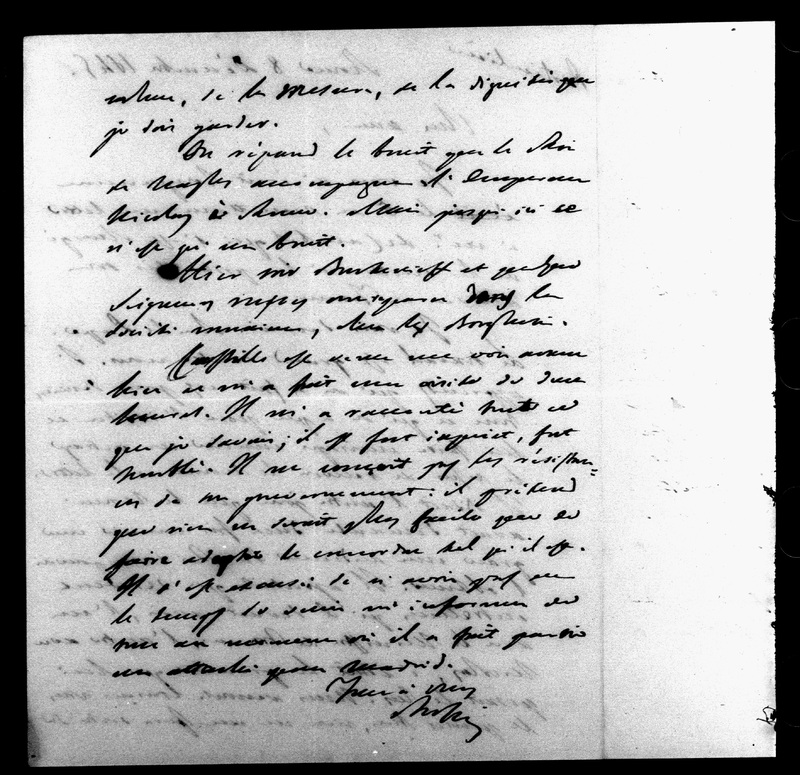 même, de la mesure, de la dignité que
je dois garder.
On répand le bruit que le Roi
de Naples accompagnera l'Empereur
Nicolas à Rome. Mais jusqu'ici ce
n'est qu'un bruit.
Hier soir et quelques
Seigneurs russes dans la
Société romaine, chez les Borghese.
Castillo est venu me voir avant
hier et m'a fait une visite de deux
heures. Il m'a raconté tout ce
que je savais; il est fort inquiet, fort
troublé. Il ne conçoit pas les résistan=
ces de son gouvernement: il prétend
que rien ne serait plus facile que de
faire adopter le concordat tel qu'il est.
Il s'est excusé de n'avoir pas eu
le temps de venir m'informer de
tout au moment où il a fait partir
un attaché pour Madrid.
Tout à vous
Rossi